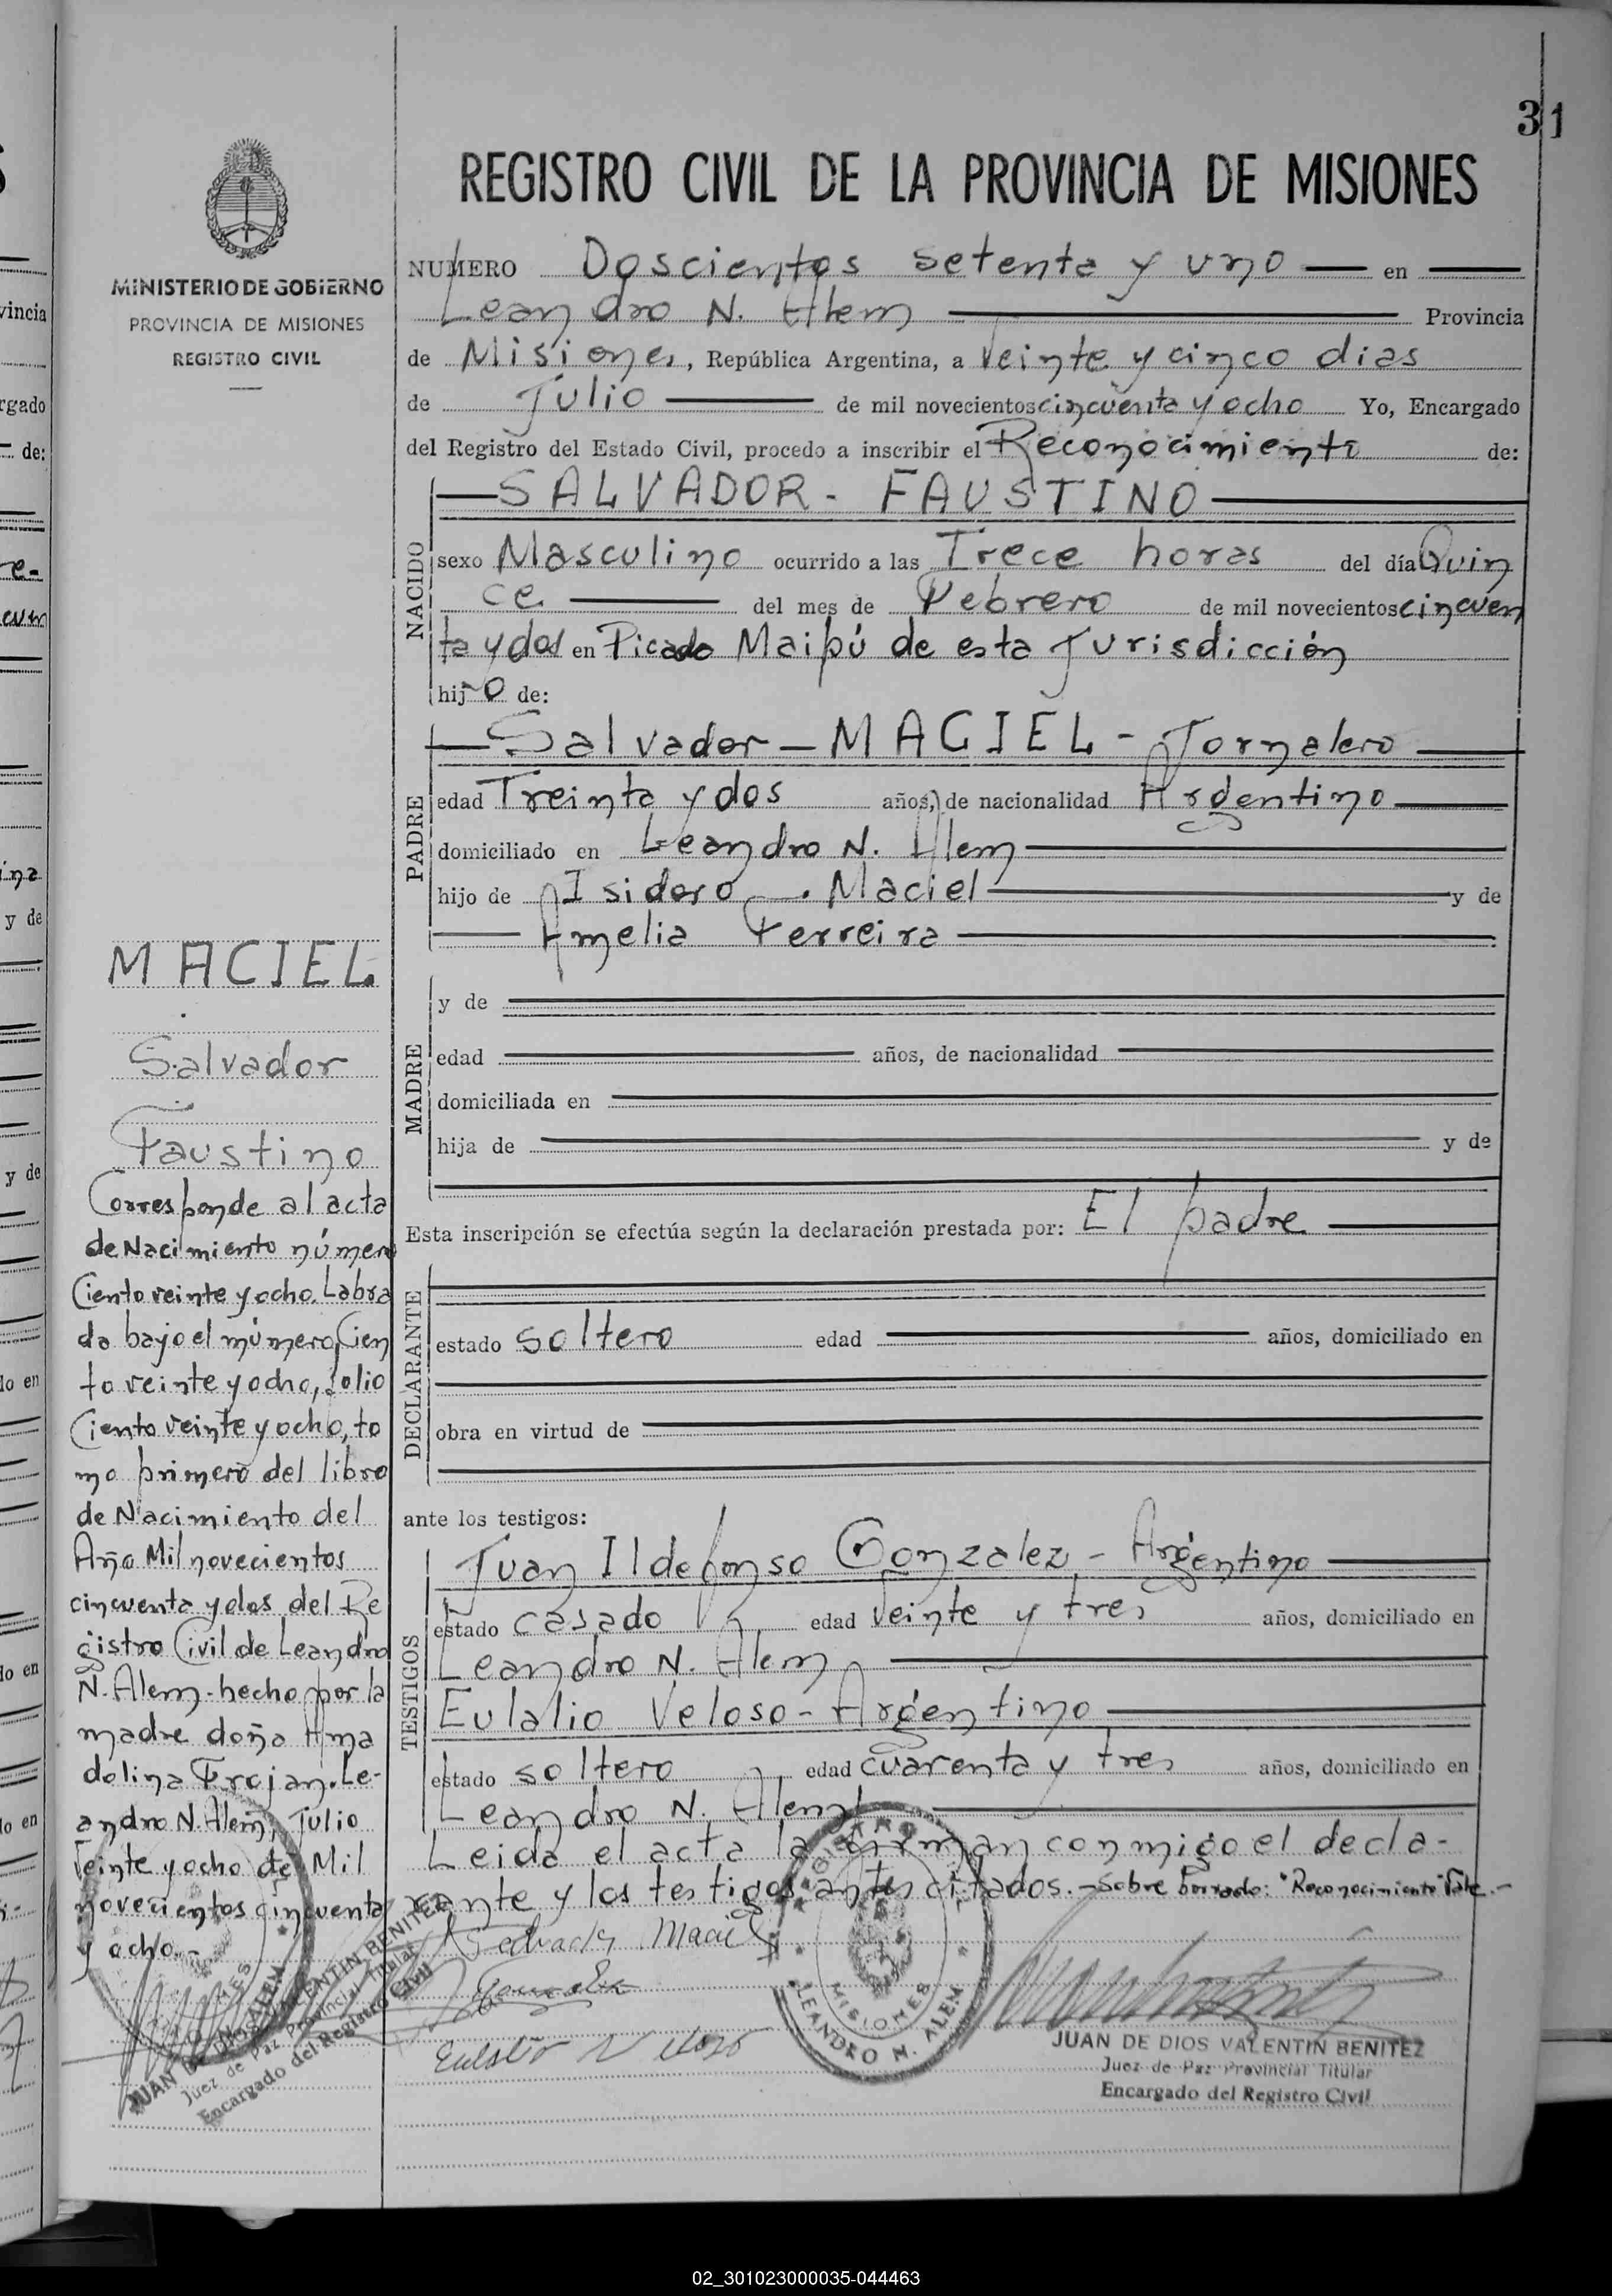 31
REGISTRO CIVIL DE LA PROVINCIA DE MISIONES
MINISTERIO DE GOBIERNO
PROVINCIA DE MISIONES
REGISTRO CIVIL
NUMERO Doscientos setenta y uno en
Leandro N. Alem Provincia
de Misiones, República Argentina, a Veinte y cinco dias
de Julio de mil novecientos cincuenta y ocho Yo, Encargado
del Registro del Estado Civil, procedo a inscribir el Reconocimiento de:
NACIDO
SALVADOR - FAUSTINO
sexo Masculino ocurrido a las Trece horas del día Quin
ce del mes de Febrero de mil novecientos cincuen
ta y dos en Picada Maipú de esta Jurisdicción
hijo de:
PADRE
Salvador - MACIEL - Jornalero
edad Treinta y dos años, de nacionalidad Argentino
domiciliado en Leandro N. Alem
hijo de Isidoro . Maciel y de
Amelia Ferreira
MADRE
y de
edad años, de nacionalidad
domiciliada en
hija de y de
Esta inscripción se efectúa según la declaración prestada por: El padre
DECLARANTE
estado soltero edad años, domiciliado en
obra en virtud de
ante los testigos:
TESTIGOS
Juan Ildefonso Gonzalez - Argentino
estado casado edad Veinte y tres años, domiciliado en
Leandro N. Alem
Eulalio Veloso - Argentino
estado soltero edad cuarenta y tres años, domiciliado en
Leandro N. Alem
Leida el acta la firman conmigo el decla-
rante y los testigos antes citados. - Sobre borrado: "Reconocimiento" Vale. -
MACIEL
Salvador
Faustino
Corresponde al acta
de Nacimiento número
Ciento veinte y ocho. Labra
da bajo el número Cien
to veinte y ocho, folio
Ciento veinte y ocho, to
mo primero del libro
de Nacimiento del
Año Mil novecientos
cincuenta y dos del Re
gistro Civil de Leandro
N. Alem - hecho por la
madre doña Ama
dolina Trojan. Le-
andro N. Alem, Julio
Veinte y ocho de Mil
novecientos cincuenta
y ocho. -
JUAN DE DIOS VALENTIN BENITEZ
Juez de Paz Provincial Titular
Encargado del Registro Civil
Maciel
Gonzalez
MISIONES
LEANDRO N. ALEM
JUAN DE DIOS VALENTIN BENITEZ
Juez de Paz Provincial Titular
Encargado del Registro Civil
02_301023000035-044463